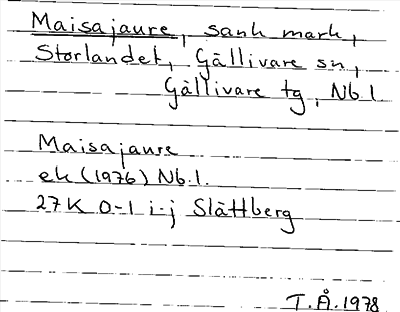 Maisajaure, sank mark,
Storlandet, Gällivare sn,
Gällivare tg, Nb.l.
Maisajaure
ek (1976) Nb.l.
27K 0-1 i-j Slättberg
T.Å. 1978